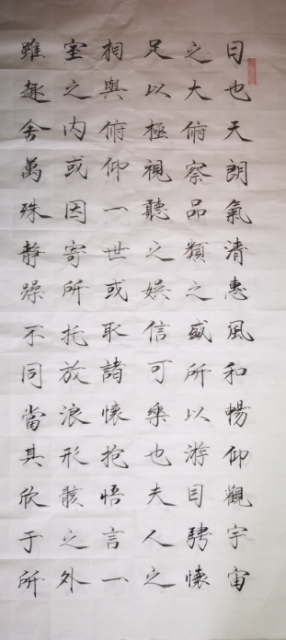 日也天朗氣清惠風和暢仰觀宇宙
之大俯察品類之盛所以游目騁懷
足以極視聽之娱信可樂也夫人之
相與俯仰一世或取諸懷抱悟言一
室之内或因寄所托放浪形骸之外
雖趣舍萬殊静躁不同當其欣于所